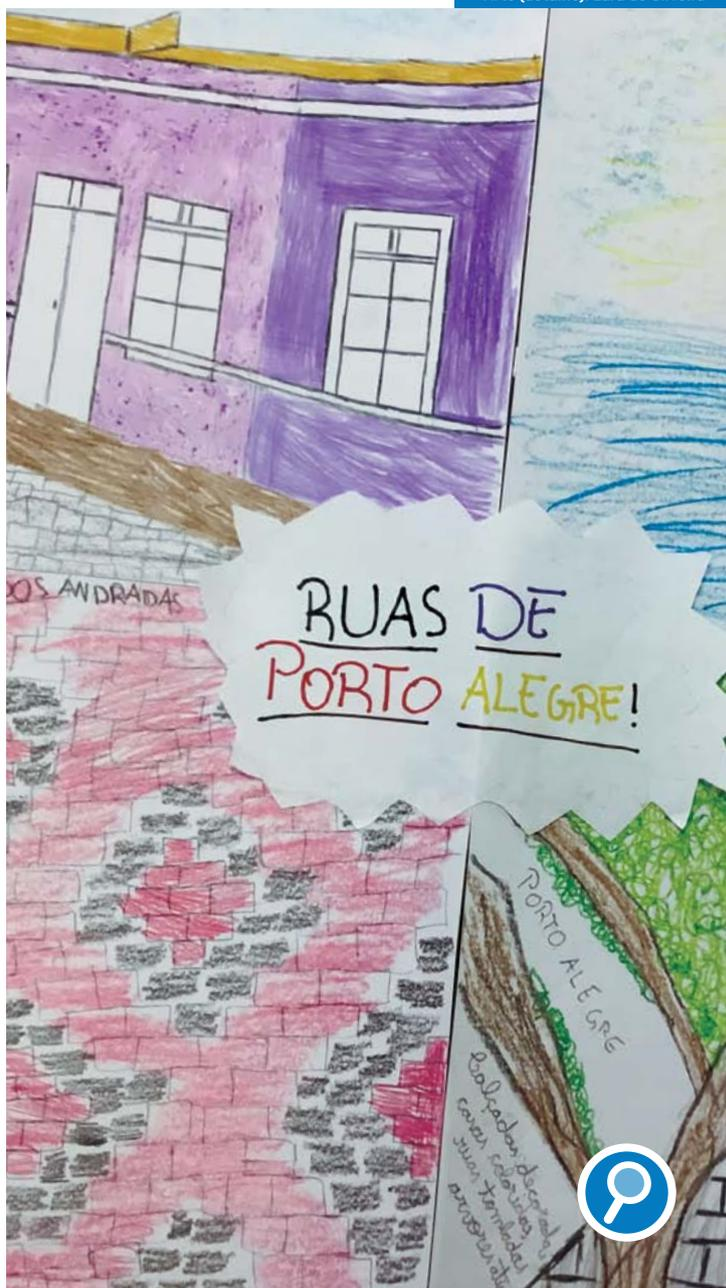 DOS ANDRADAS
RUAS DE
PORTO ALEGRE!
PORTO ALEGRE
Calçadas decorad
casas coloridas,
ruas tombadas